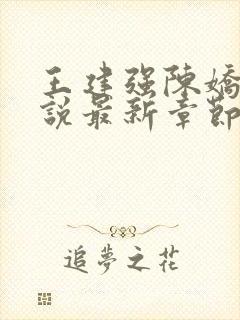 王建强陳嬌
說最新章節
追夢之花